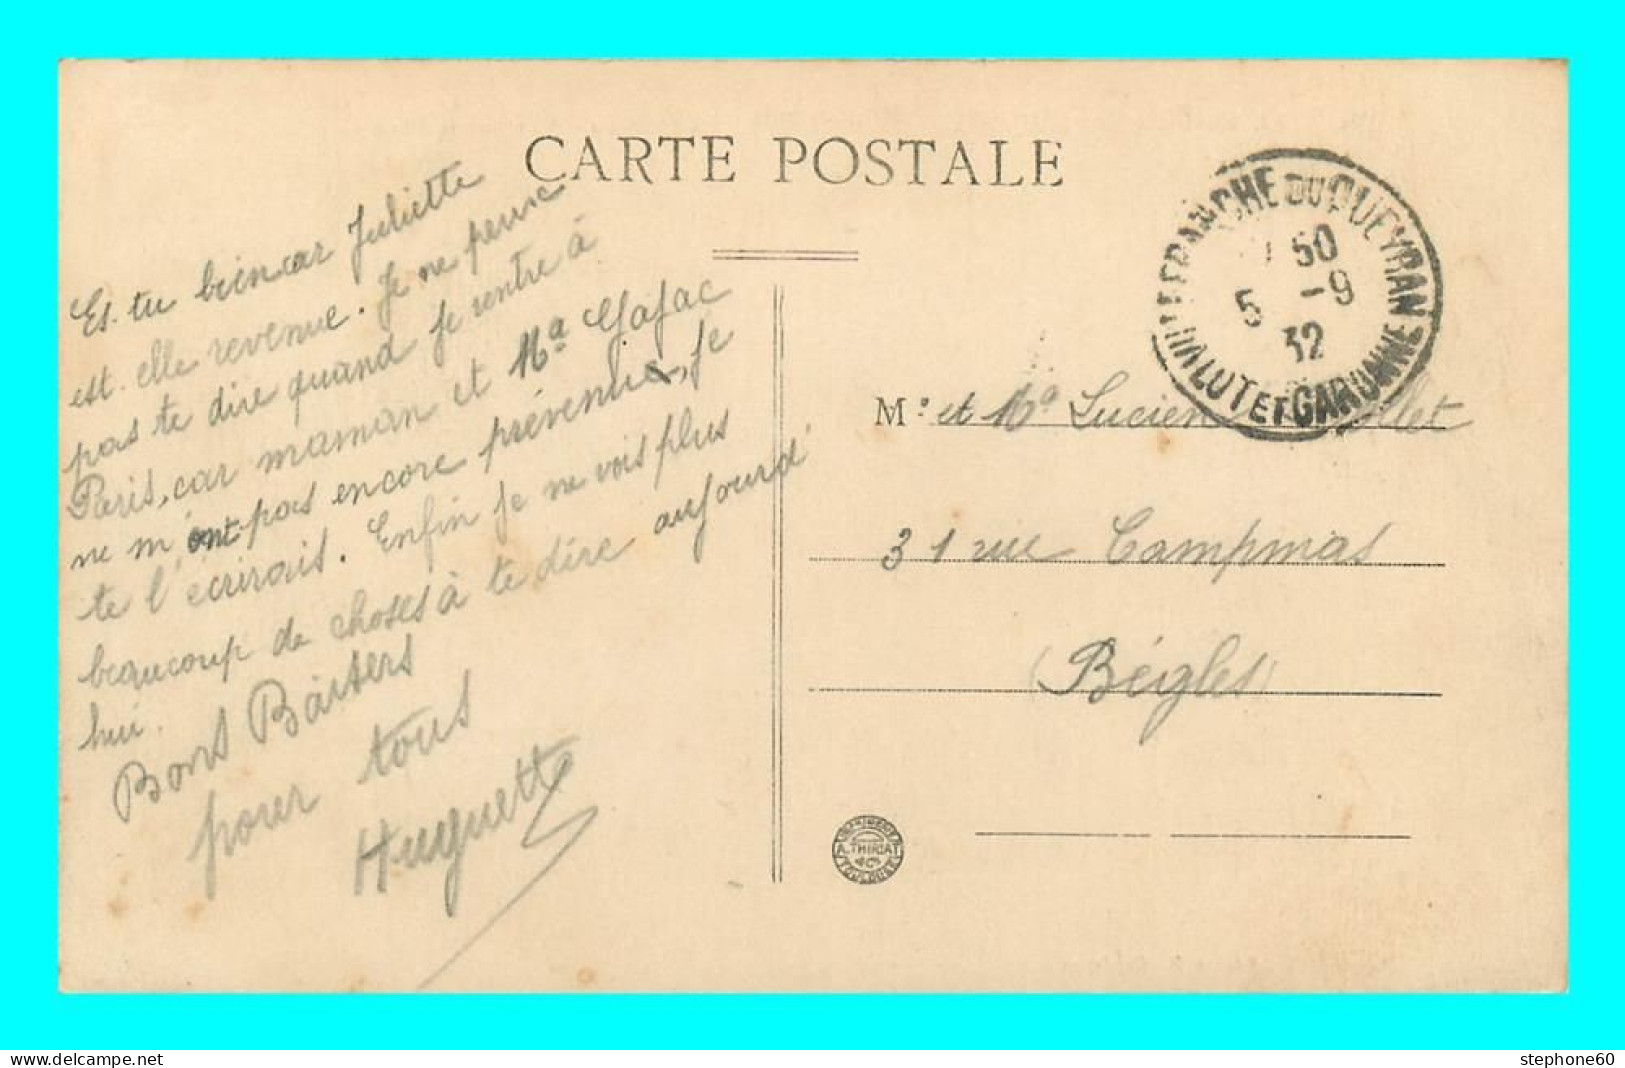 CARTE POSTALE
Es. tu bien car Juliette
est. elle revenue. Je ne peux
pas te dire quand je rentre à
Paris, car maman et Mᵃ
ne m'ont pas encore prévenue, je
te l'écrirais. Enfin je ne vois plus
beaucoup de choses à te dire aujourd'
hui.
Bons Baisers
pour tous
Huguette
FRANCHE DU QUEYRAN
50
5 -9
32
LOT ET GARONNE
M. et Mᵃ Lucien
31 rue Campmas
(Bègles)
A. THIRIAT
TOULOUSE
delcampe.net
stephone60